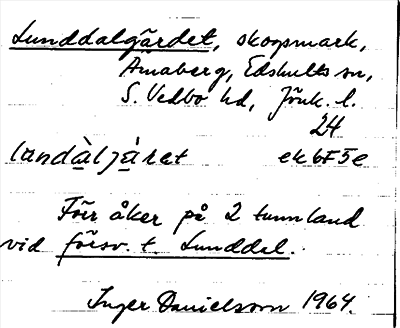 Lunddalgärdet, skogsmark,
Amaberg, Edshults sn,
S. Vedbo hd, Jönk. l.
24
ek 6F5e
Förr åker på 2 tunnland
vid försv. t. Lunddal.
Inger Danielsson 1964.